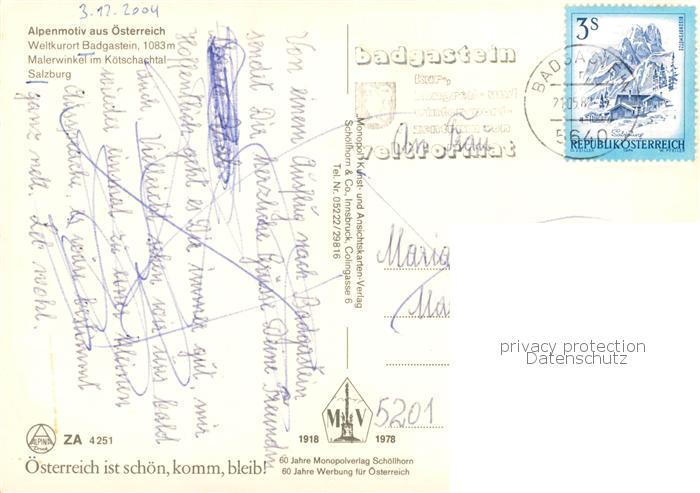 3.12.2004
Alpenmotiv aus Österreich
Weltkurort Badgastein, 1083 m
Malerwinkel im Kötschachtal
Salzburg
Von einem Ausflug nach Badgastein
sendet Dir herzliche Grüße Deine Freundin
Hoffentlich geht es Dir immer gut, mir
auch. Vielleicht schon wir uns bald
wieder einmal zu einer kleinen
es wäre bestimmt
ganz nett. Leb wohl.
Monopol Kunst- und Ansichtskarten-Verlag
Schöllhorn & Co., Innsbruck, Colingasse 6
Tel. Nr. 05222/29816
badgastein
kur-,
kongreß- und
wintersport-
zentrum von
weltformat
BADGASTEIN
5640
3 S
Salzburg
REPUBLIK ÖSTERREICH
An Frau
Maria
Ma
5201
privacy protection
Datenschutz
ALPINA
Druck
ZA 4 251
Österreich ist schön, komm, bleib!
M V
1918 1978
60 Jahre Monopolverlag Schöllhorn
60 Jahre Werbung für Österreich